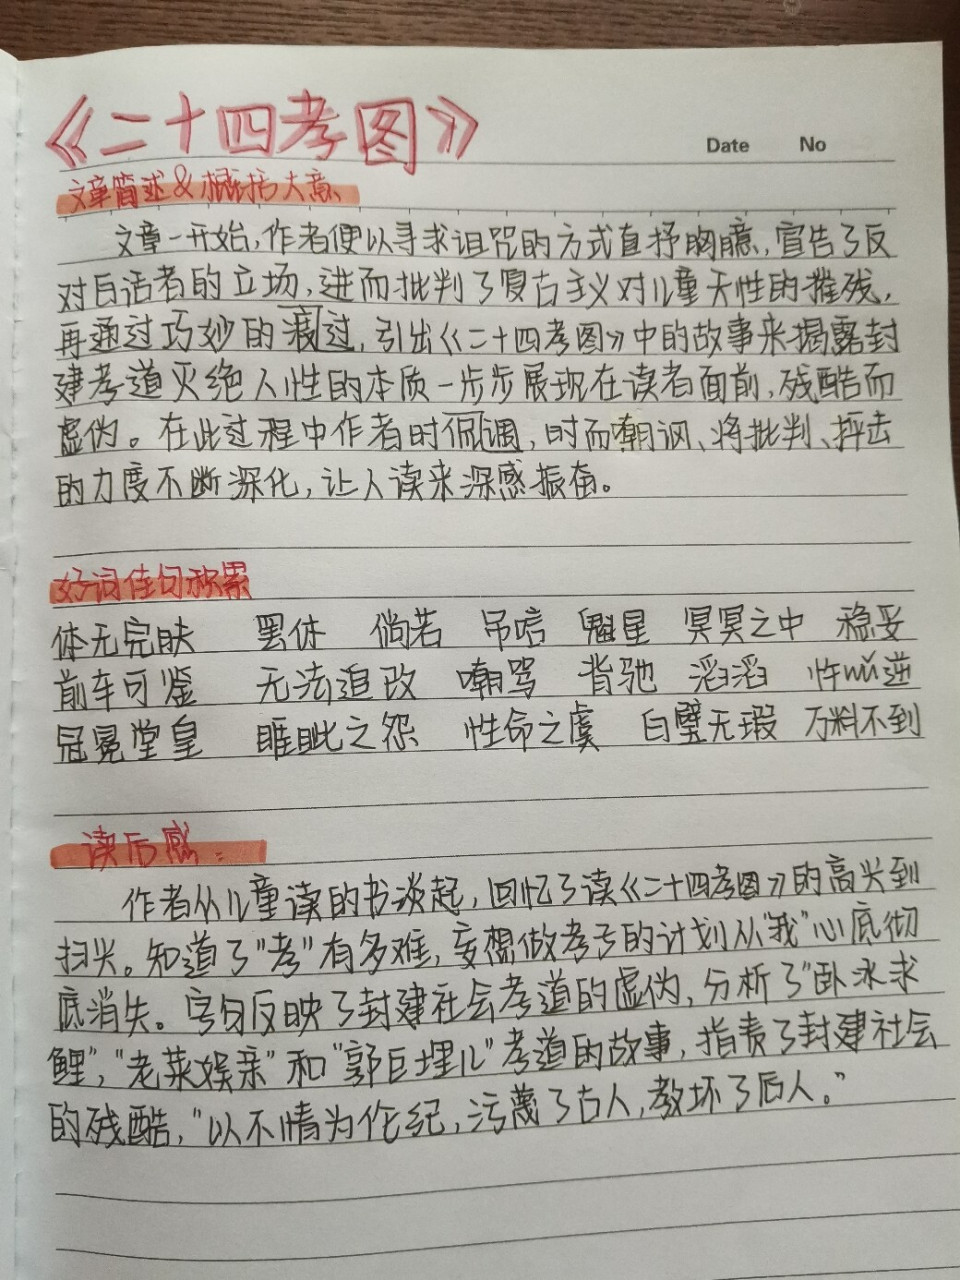 《二十四孝图》
Date No
文章简述&概括大意
文章一开始,作者便以寻求诅咒的方式直抒胸臆,宣告了反
对白话者的立场,进而批判了复古主义对儿童天性的摧残,
再通过巧妙的渡过,引出《二十四孝图》中的故事来揭露封
建孝道灭绝人性的本质一步步展现在读者面前,残酷而
虚伪。在此过程中作者时侃调,时而嘲讽、将批判、抨击
的力度不断深化,让人读来深感振奋。
好词佳句积累
体无完肤 罢休 倘若 吊唁 魁星 冥冥之中 稳妥
前车可鉴 无法追改 嘲骂 背驰 滔滔 忤wǔ逆
冠冕堂皇 睚眦之怨 性命之虞 白璧无瑕 万料不到
读后感:
作者从儿童读的书谈起,回忆了读《二十四孝图》的高兴到
扫兴。知道了"孝"有多难,妄想做孝子的计划从"我"心底彻
底消失。字句反映了封建社会孝道的虚伪,分析了"卧冰求
鲤","老莱娱亲"和"郭巨埋儿"孝道的故事,指责了封建社会
的残酷,"以不情为伦纪,污蔑了古人,教坏了后人。"